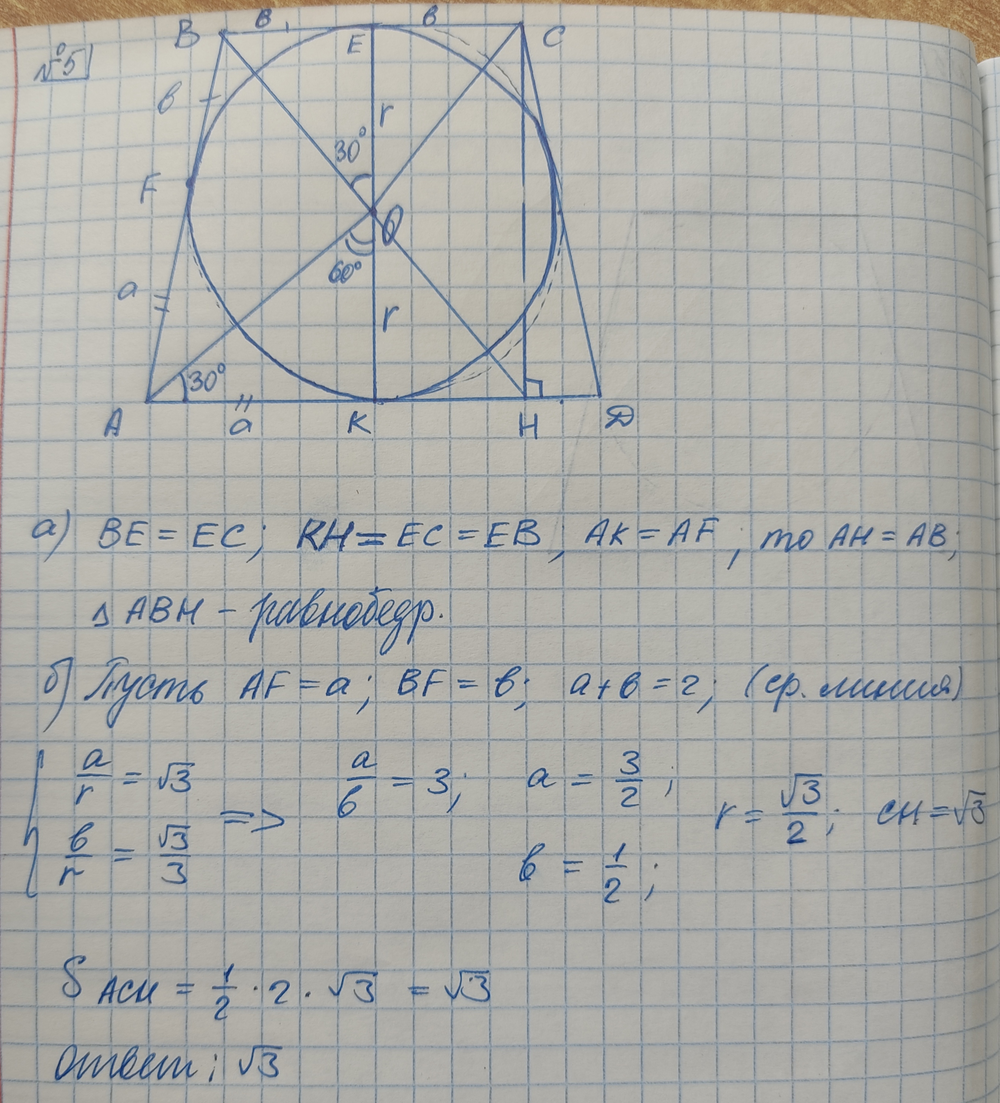 №5
B в E в C
в
30° r
F
O
60°
a
r
30°
A a K H D
а) BE = EC; KH = EC = EB; AK = AF; то AH = AB;
Δ ABH – равнобедр.
б) Пусть AF = a; BF = в; a + в = 2; (ср. линия)
a/r = √3 => a/в = 3; a = 3/2; r = √3/2; CH = √3
в/r = √3/3 в = 1/2;
S ACH = 1/2 · 2 · √3 = √3
Ответ: √3